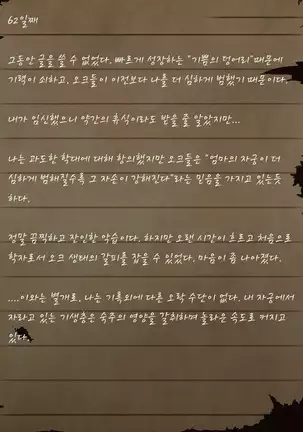 62일째
그동안 글을 쓸 수 없었다. 빠르게 성장하는 "기쁨의 덩어리"때문에
기력이 쇠하고, 오크들이 이전보다 나를 더 심하게 범했기 때문이다.
내가 임신했으니 약간의 휴식이라도 받을 줄 알았지만...
나는 과도한 학대에 대해 항의했지만 오크들은 "엄마의 자궁이 더
심하게 범해질수록 그 자손이 강해진다"라는 믿음을 가지고 있는듯
하다.
정말 끔찍하고 잔인한 악습이다. 하지만 오랜 시간이 흐르고 처음으로
학자로서 오크 생태의 갈피를 잡을 수 있었다. 마음이 좀 나아졌다.
....이와는 별개로, 나는 기록외에 다른 오락 수단이 없다. 내 자궁에서
자라고 있는 기생충은 숙주의 영양을 갈취하며 놀라운 속도로 커지고
있다.